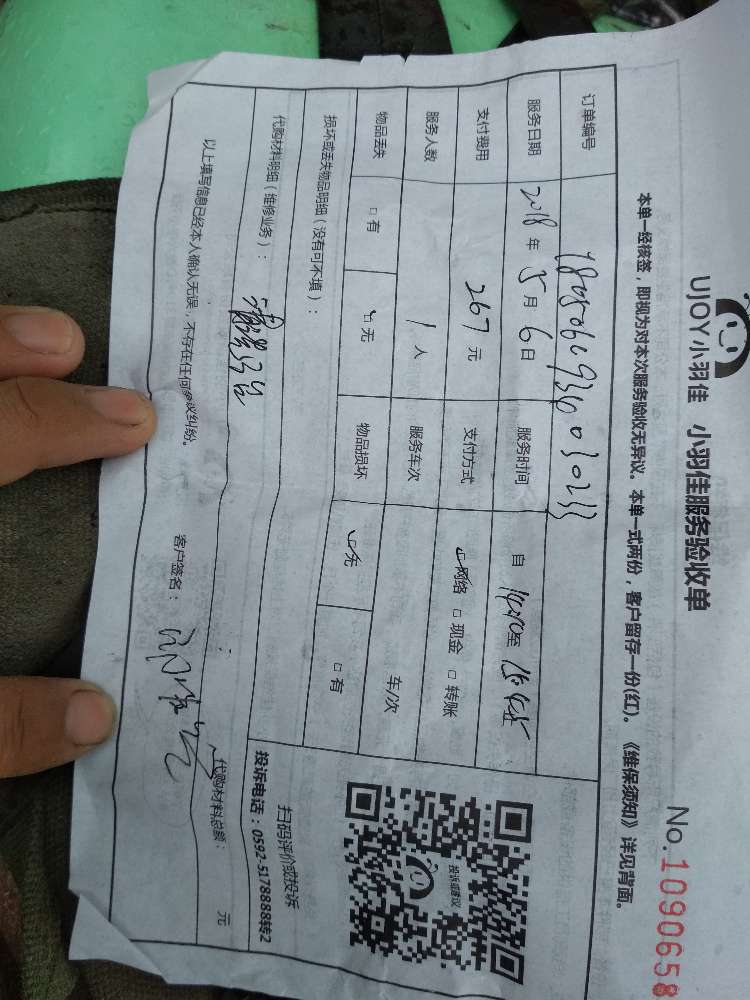 UJOY小羽佳 小羽佳服务验收单
No.1090658
本单一经核签，即视为对本次服务验收无异议。本单一式两份，客户留存一份(红)。《维保须知》详见背面。
订单编号
服务日期 2018 年 5 月 6 日 服务时间 自 至
支付费用 267 元 支付方式 ☑网络 □现金 □转账
服务人数 1 人 服务车次 车/次
物品丢失 □有 ☑无 物品损坏 ☑无 □有
损坏或丢失物品明细（没有可不填）：
代购材料明细（维修业务）：
代购材料总额： 元
以上填写信息已经本人确认无误，不存在任何争议纠纷。 客户签名：
投诉或建议
扫码评价或投诉
投诉电话：0592-5178888转2